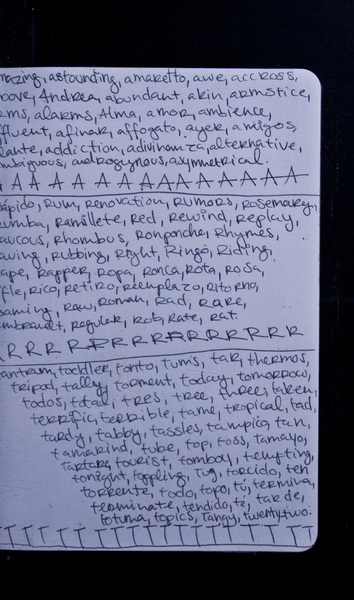 mazing, astounding, amaretto, awe, accross,
bove, Andrea, abundant, akin, armstice,
rms, alarms, Alma, amor, ambience,
ffluent, afinar, affogato, ayer, amigos,
lante, addiction, adivinanza, alternative,
mbiguous, androgynous, asymmetrical.
A A A A A A A A A A A A A
ápido, Rum, renovation, Rumors, Rosemary,
umba, Ramillete, Red, Rewind, Replay,
aucous, Rhombus, Ronponche, Rhymes,
aving, Rubbing, Right, Ringo, Riding,
ape, Rapper, Ropa, Ronca, Rota, Rosa,
fle, Rico, Retiro, Reemplazo, Ritorno,
oaming, Raw, Roman, Rad, Rare,
mbrandt, Regular, Rob, Rate, Rat.
R R R R R R R R R R R R R
antrum, toddler, tonto, Tums, tar, thermos,
tripod, tally, torment, today, tomorrow,
todos, total, tres, tree, three, taken,
terrific, terrible, tame, tropical, tad,
tardy, tabby, tassles, tampico, tan,
tamarind, tube, top, toss, tamayo,
tartar, tourist, tomboy, tempting,
tonight, toppling, Tug, torcido, ten
torrente, todo, topo, tú, termina,
terminate, tendido, té, tarde,
fotuma, topics, Tangy, twenty-two.
T T T T T T T T T T T T T T T